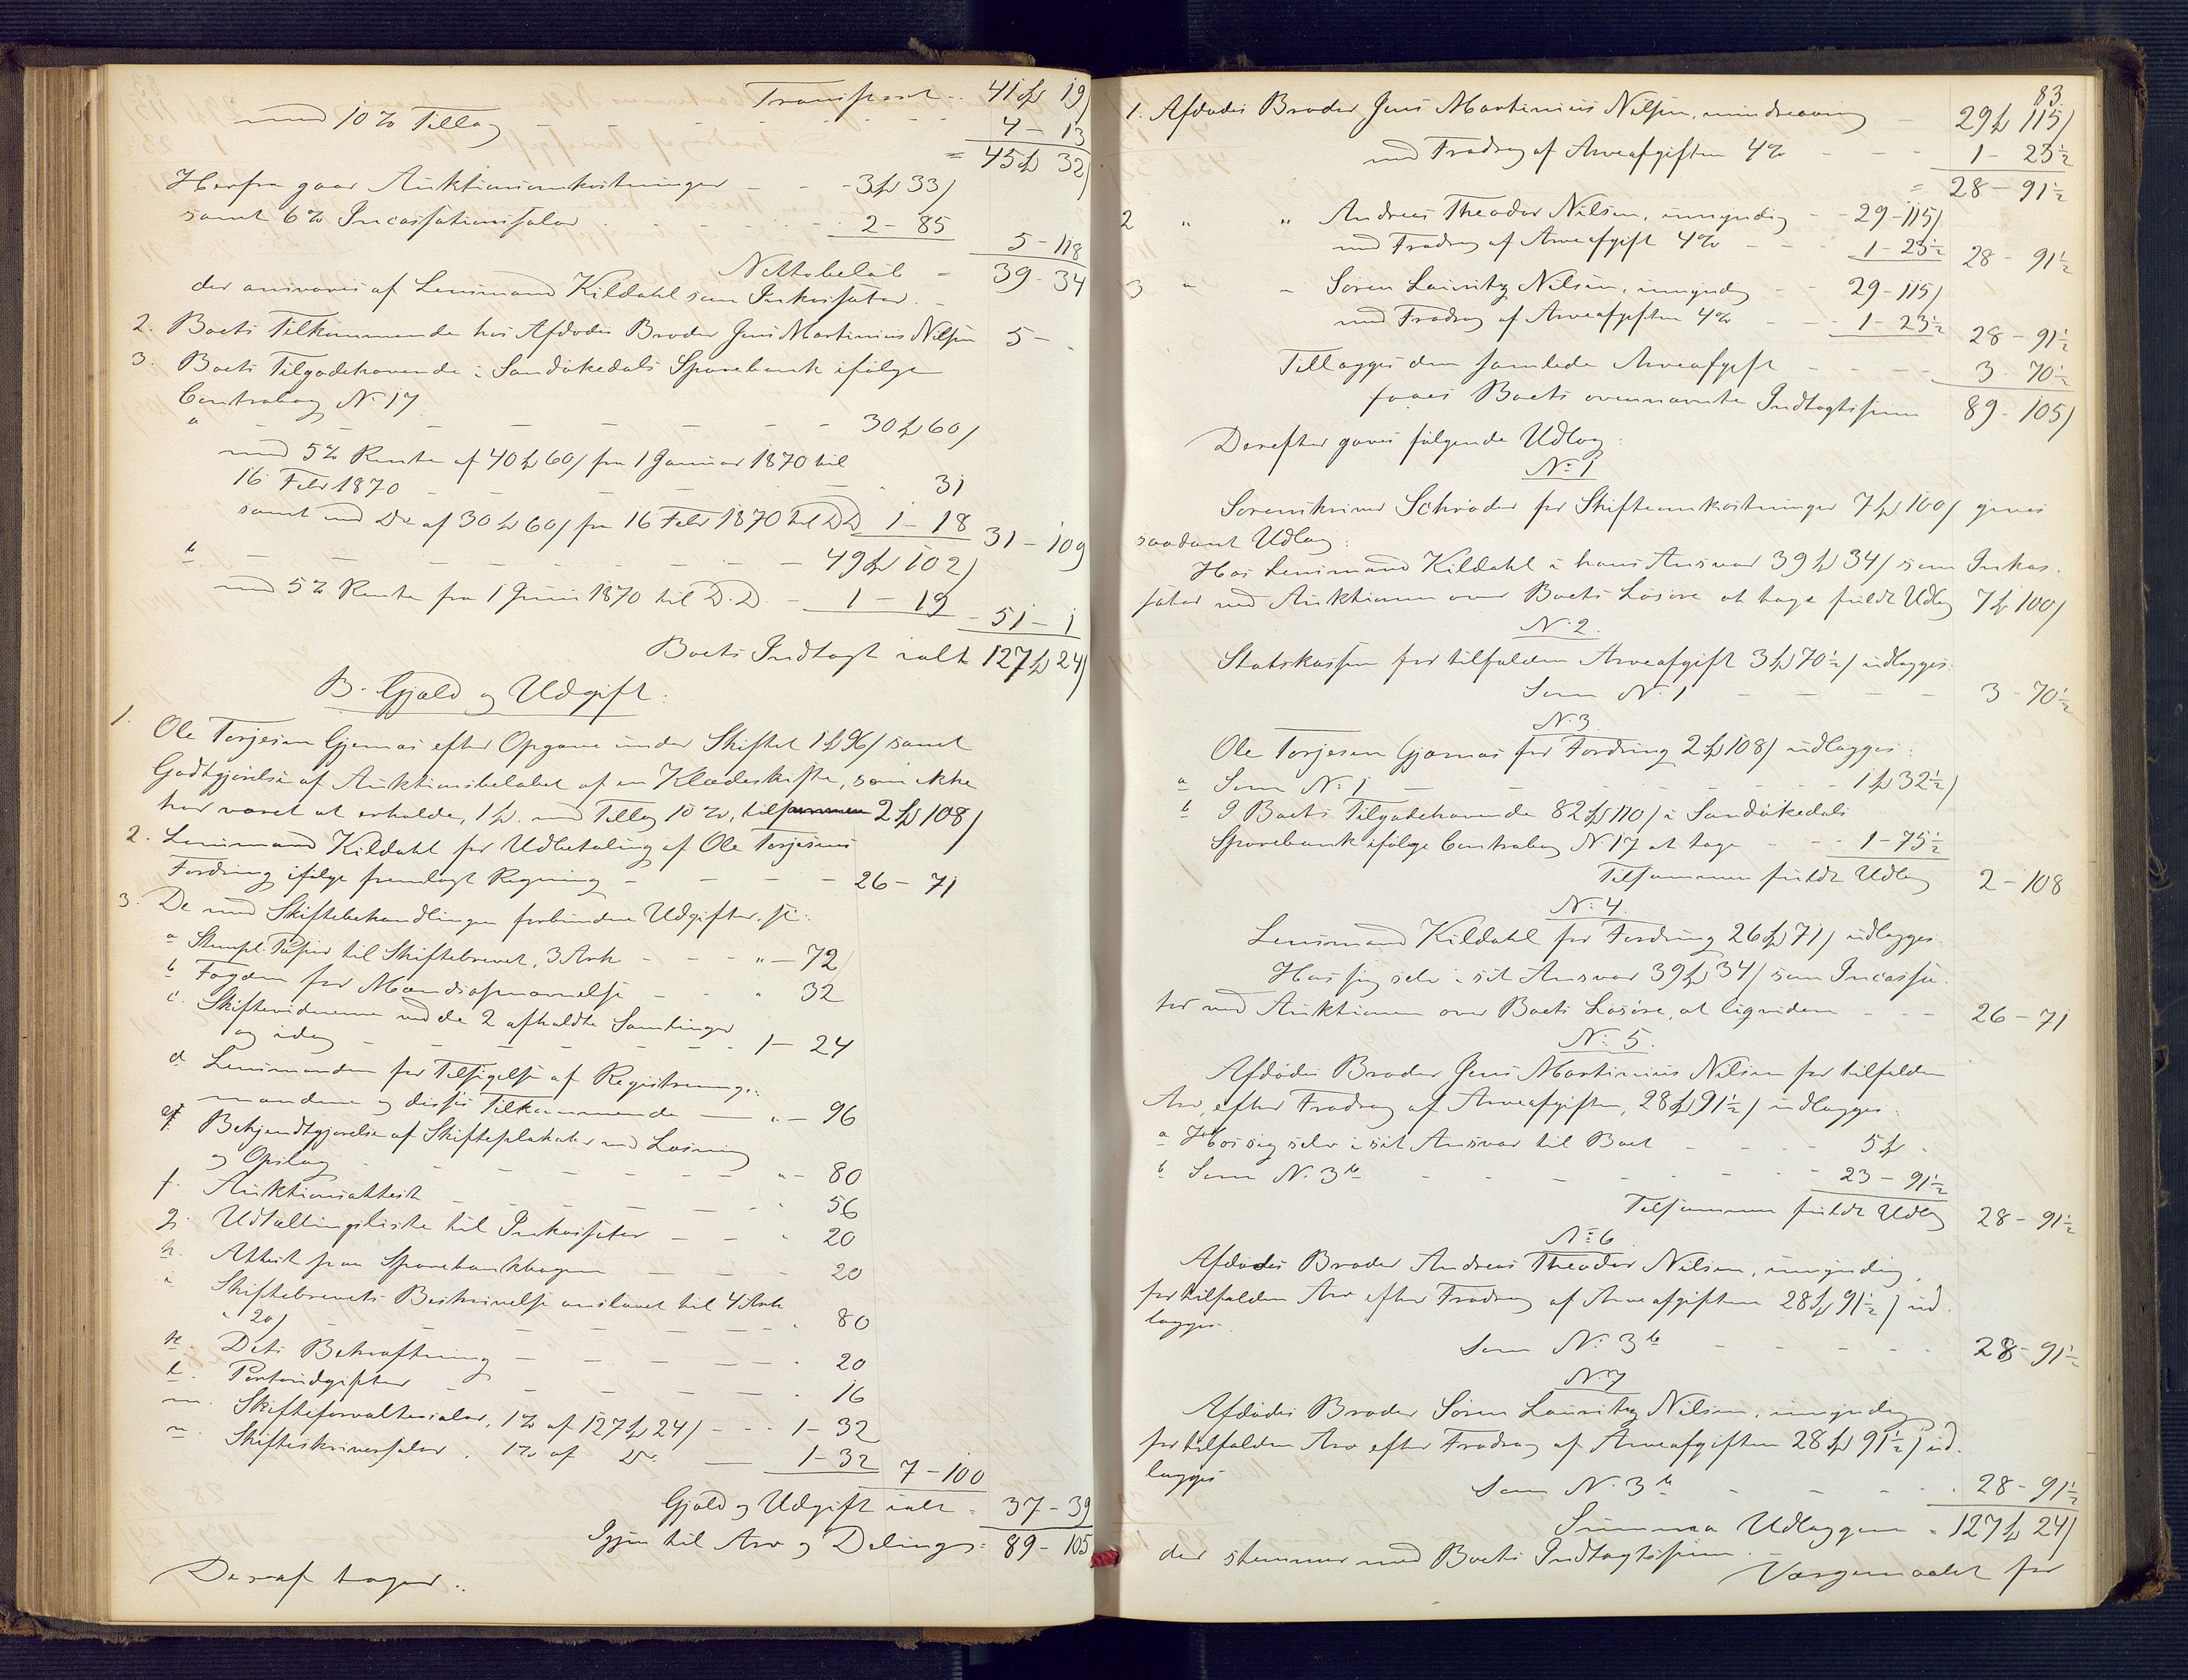 Transport .. 41 Spd 19 ß
med 10% Tillæg - - - 4 - 13
= 45 Spd 32 ß
Herfra gaar Auktionsomkostninger - - 3 Spd 33 ß
samt 6% Incassationssalær - - - 2 - 85
5 - 118
Nettobeløb - 39 - 34
der ansvares af Lensmand Kildahl som Inkassator. -
2. Boets Tilkommende hos Afdødes Broder Jens Martinius Nilsen 5 - .
3. Boets Tilgodehavende i Sandøkedals Sparebank ifølge
Contrabog N. 17
a - - - - - 30 Spd 60 ß
med 5% Rente af 40 Spd 60 ß fra 1 Januar 1870 til
16 Febr 1870 - - - - 31
samt med Do af 30 Spd 60 ß fra 16 Febr 1870 til DD 1 - 18 31 - 109
b - - - - - 49 Spd 102 ß
med 5% Rente fra 1 Juni 1870 til D.D. - 1 - 19 - 51 - 1
Boets Indtægt ialt 127 Spd 24 ß
B. Gjæld og Udgift.
1. Ole Torjesen Gjernæs efter Opgave under Skiftet 1 Spd 96 ß samt
Godtgjørelse af Auktionsbeløbet af en Klædeskiste, som ikke
har været at erholde, 1 Spd. med Tillæg 10%, tilsammen 2 Spd 108 ß
2. Lensmand Kildahl for Udbetaling af Ole Torjesens
Fordring ifølge fremlagt Regning - - - 26 - 71
3. De med Skiftebehandlingen forbundne Udgifter, si:
a Stempl. Papir til Skiftebrevet, 3 Ark - - - " - 72
b Fogden for Mandsopnævnelse - - " 32
c. Skiftevidnerne ved de 2 afholdte Samlinger
og idag - - - - - 1 - 24
d Lensmanden for Tilsigelse af Registrerings-
mændene og disses Tilkommende - " - 96
e. Bekjendtgjørelse af Skifteplakater ved Læsning
og Opslag - - - - " - 80
f. Auktionsattest - - - - 56
g. Udtællingsliste til Inkassator - - " 20
h. Attest paa Sparebankbogen - - - 20
i Skiftebrevets Beskrivelse anslaaet til 4 Ark
a 20 ß - - - - - 80
k. Dets Bekræftning - - - - 20
l. Portoudgifter - - - - 16
m. Skifteforvaltersalær, 1% af 127 Spd 24 ß - - - 1 - 32
n. Skifteskriversalær, 1% af Do. - 1 - 32 7 - 100
Gjæld og Udgift ialt - 37 - 39
Igjen til Arv og Delings = 89 - 105
Deraf tager ..
83.
1. Afdødes Broder Jens Martinius Nilsen, mindreaarig - 29 Spd 115 ß
med Fradrag af Arveafgiften 4% - - - 1 - 23½
= 28 - 91½
2 " " Andreas Theodor Nilsen, umyndig - - 29 - 115 ß
med Fradrag af Arveafgift 4% - - 1 - 23½ 28 - 91½
3 " " Søren Lauritz Nilsen, umyndig - - 29 - 115 ß
med Fradrag af Arveafgiften 4% - - 1 - 23½ 28 - 91½
Tillægges den samlede Arveafgift - - - - 3 - 70½
faaes Boets ovennævnte Indtægtssum 89 - 105 ß
Derefter gjøres følgende Udlæg:
No 1
Sorenskriver Schrøder for Skifteomkostninger 7 Spd 100 ß gives
saadant Udlæg:
Hos Lensmand Kildahl i hans Ansvar 39 Spd 34 ß som Inkas-
sator ved Auktionen over Boets Løsøre at tage fuldt Udlæg 7 Spd 100 ß
N. 2.
Statskassen for tilfalden Arveafgift 3 Spd 70½ ß udlægges:
Som N. 1 - - - - 3 - 70½
N. 3.
Ole Torjesen Gjernæs for Fordring 2 Spd 108 ß udlægges:
a Som N. 1 - - - - - 1 Spd 32½ ß
b I Boets Tilgodehavende 82 Spd 110 ß i Sandøkedals
Sparebank ifølge Contrabog N. 17 at tage - - 1 - 75½
Tilsammen fuldt Udlæg 2 - 108
N. 4.
Lensmand Kildahl for Fordring 26 Spd 71 ß udlægges
Hos sig selv i sit Ansvar 39 Spd 34 ß som Incassa-
tor ved Auktionen over Boets Løsøre, at liqvidere - - - 26 - 71
N. 5.
Afdødes Broder Jens Martinius Nilsen for tilfalden
Arv, efter Fradrag af Arveafgiften, 28 Spd 91½ ß udlægges:
a Hos sig selv i sit Ansvar til Boet - - - 5 Spd .
b Som N. 3 b - - - - - 23 - 91½
Tilsammen fuldt Udlæg 28 - 91½
No 6
Afdødes Broder Andreas Theodor Nilsen, umyndig,
for tilfalden Arv efter Fradrag af Arveafgiften 28 Spd 91½ ß ud-
lægges.
Som N. 3 b - - - - - 28 - 91½
N. 7
Afdødes Broder Søren Lauritz Nilsen, umyndig
for tilfalden Arv efter Fradrag af Arveafgiften 28 Spd 91½ ß ud-
lægges
Som N. 3 b - - - - . 28 - 91½
Summa Udlæggene - 127 Spd 24 ß
der stemmer med Boets Indtægtssum. -
Værgemaalet for